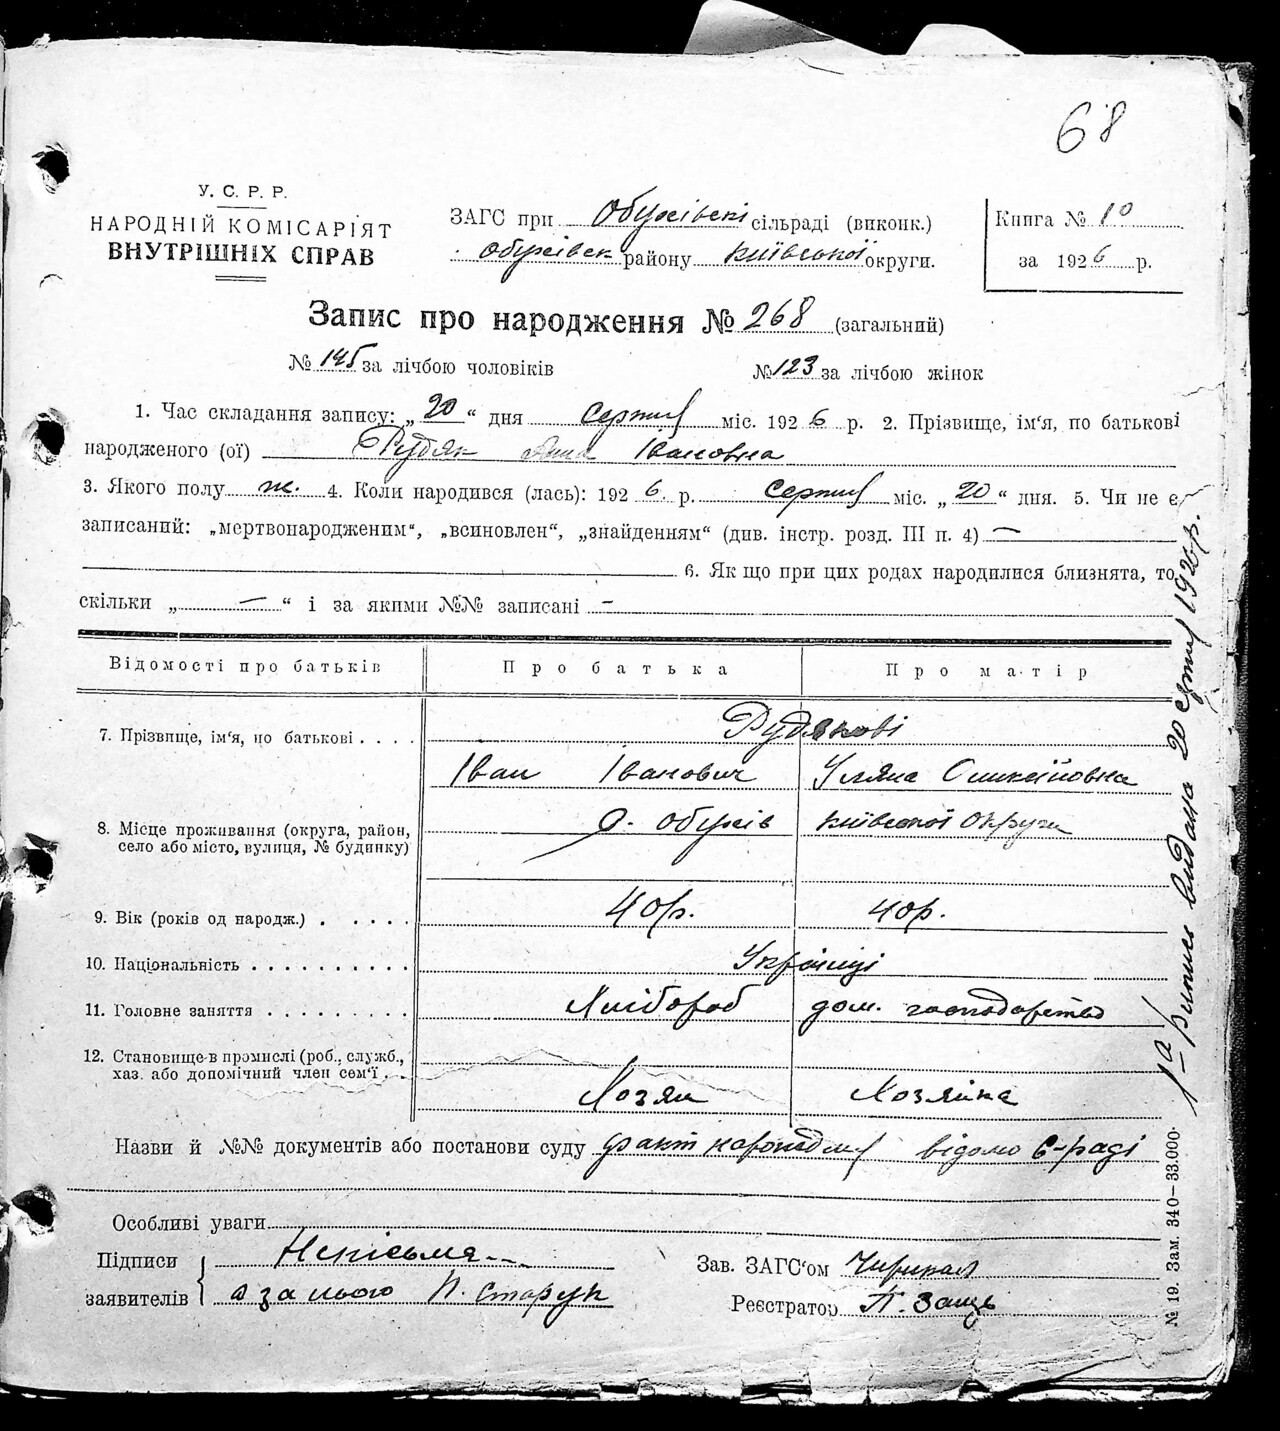 68
У. С. Р. Р.
НАРОДНІЙ КОМІСАРІЯТ
ВНУТРІШНІХ СПРАВ
ЗАГС при Обухівскі сільраді (виконк.)
Обухівск району Київської округи.
Книга № 10
за 1926 р.
Запис про народження № 268 (загальний)
№ 145 за лічбою чоловіків № 123 за лічбою жінок
1. Час складання запису: „20“ дня серпня міс. 1926 р. 2. Прізвище, ім‘я, по батькові
народженого (ої) Рудяк Анна Івановна
3. Якого полу ж. 4. Коли народився (лась): 1926. р. серпня міс. „20“ дня. 5. Чи не є
записаний: „мертвонародженим“, „всиновлен“, „знайденням“ (див. інстр. розд. III п. 4) —
6. Як що при цих родах народилися близнята, то
скільки „ — “ і за якими №№ записані —
Відомості про батьків Про батька Про матір
7. Прізвище, ім‘я, по батькові . . . . Рудякові
Іван Іванович Уляна
8. Місце проживання (округа, район, с. Обухів Київської Округи
село або місто, вулиця, № будинку)
9. Вік (років од народж.) . . . . . 40р. 40р.
10. Національність . . . . . . . . . . Українці
11. Головне заняття . . . . . . . . . Хлібороб дом. господарство
12. Становище в промислі (роб., служб.,
хаз. або допомічний член сем‘ї . . . Хозяін Хозяйка
Назви й №№ документів або постанови суду факт народження відомо С-раді
Особливі уваги
Підписи Неписьмя---
заявителів а за нього П. Старук
Зав. ЗАГС‘ом
Реєстратор П. Заць
1а випись видана 20 серпня 1926 р.
№ 19. Зам. 340—33.000.